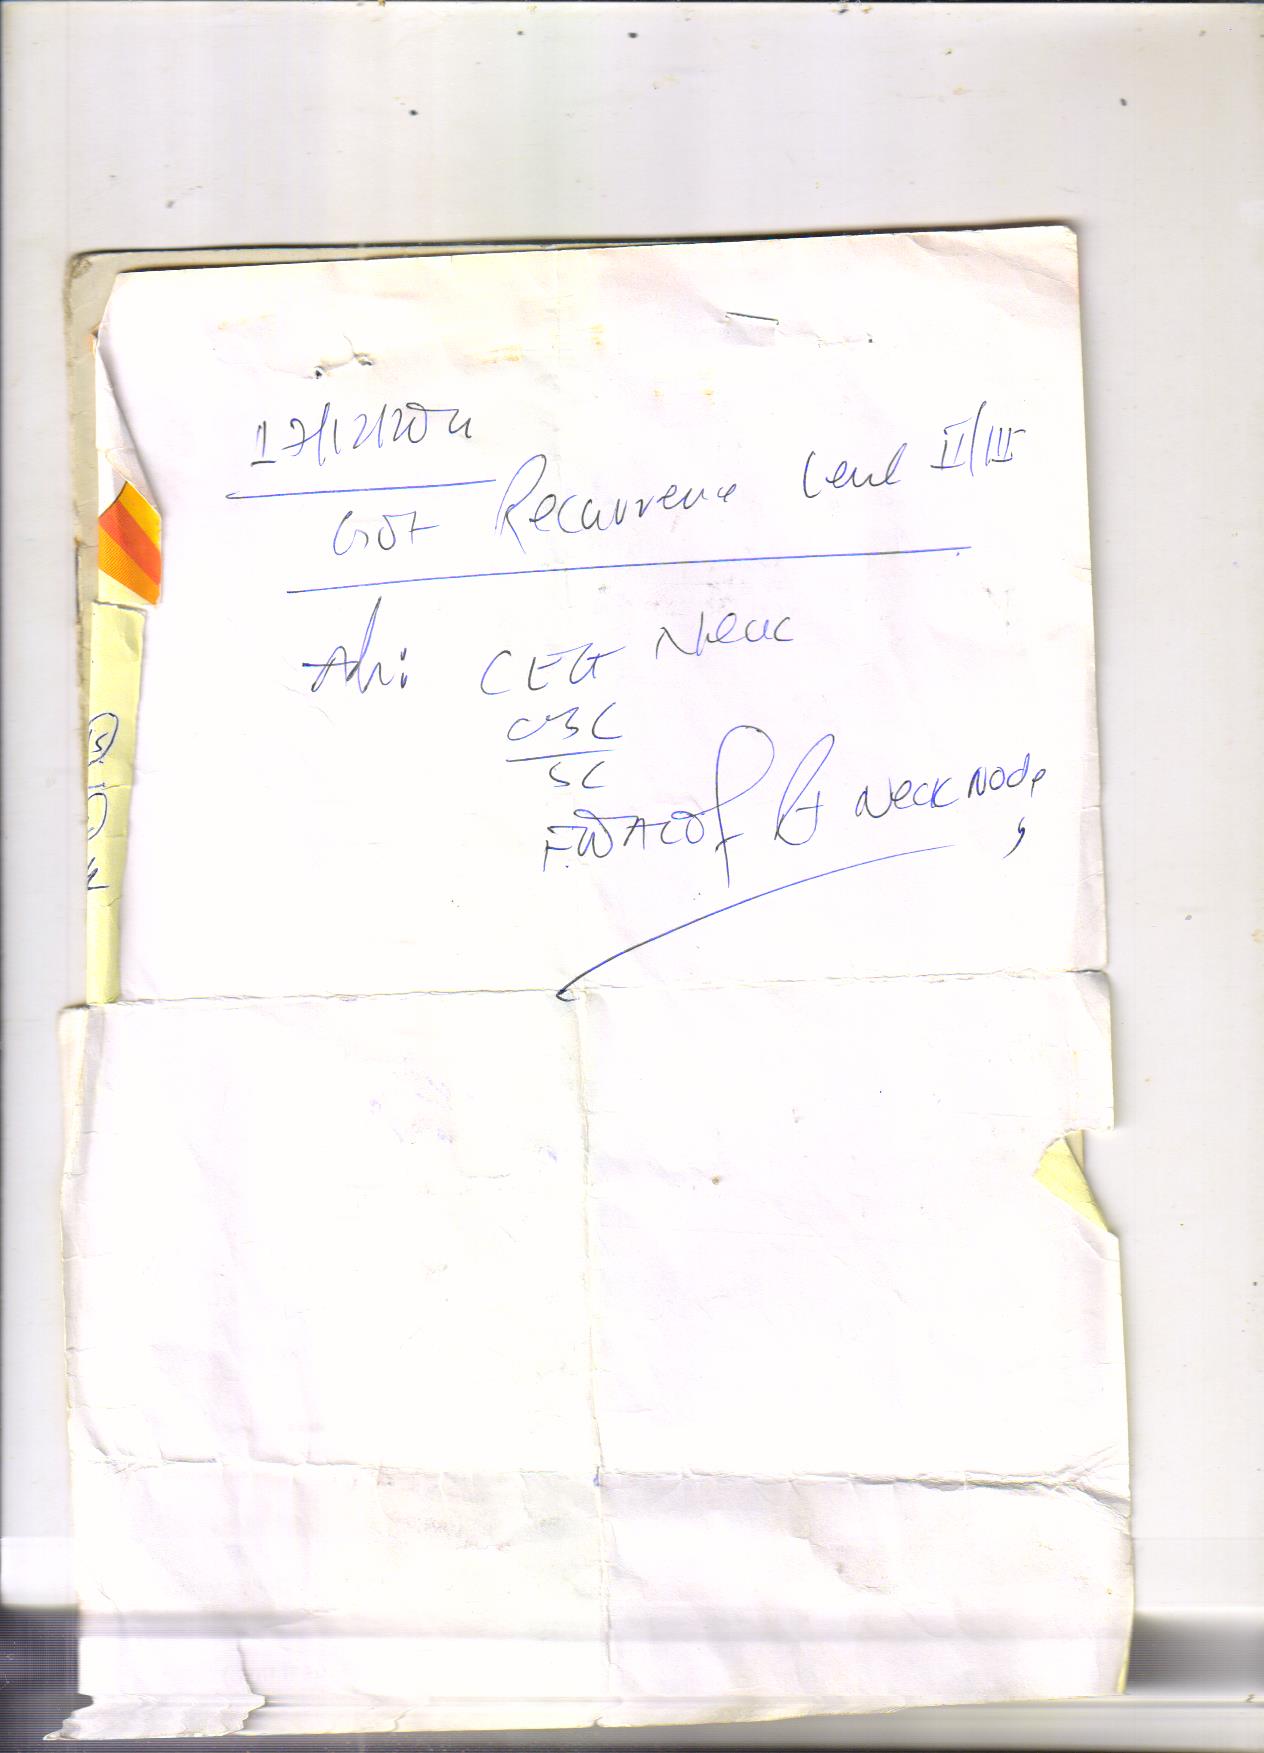 17/12/2024
Got Recurrence Level II/III
Adv: CECT Neck
CBC
SC
FNAC of Rt Neck Node,